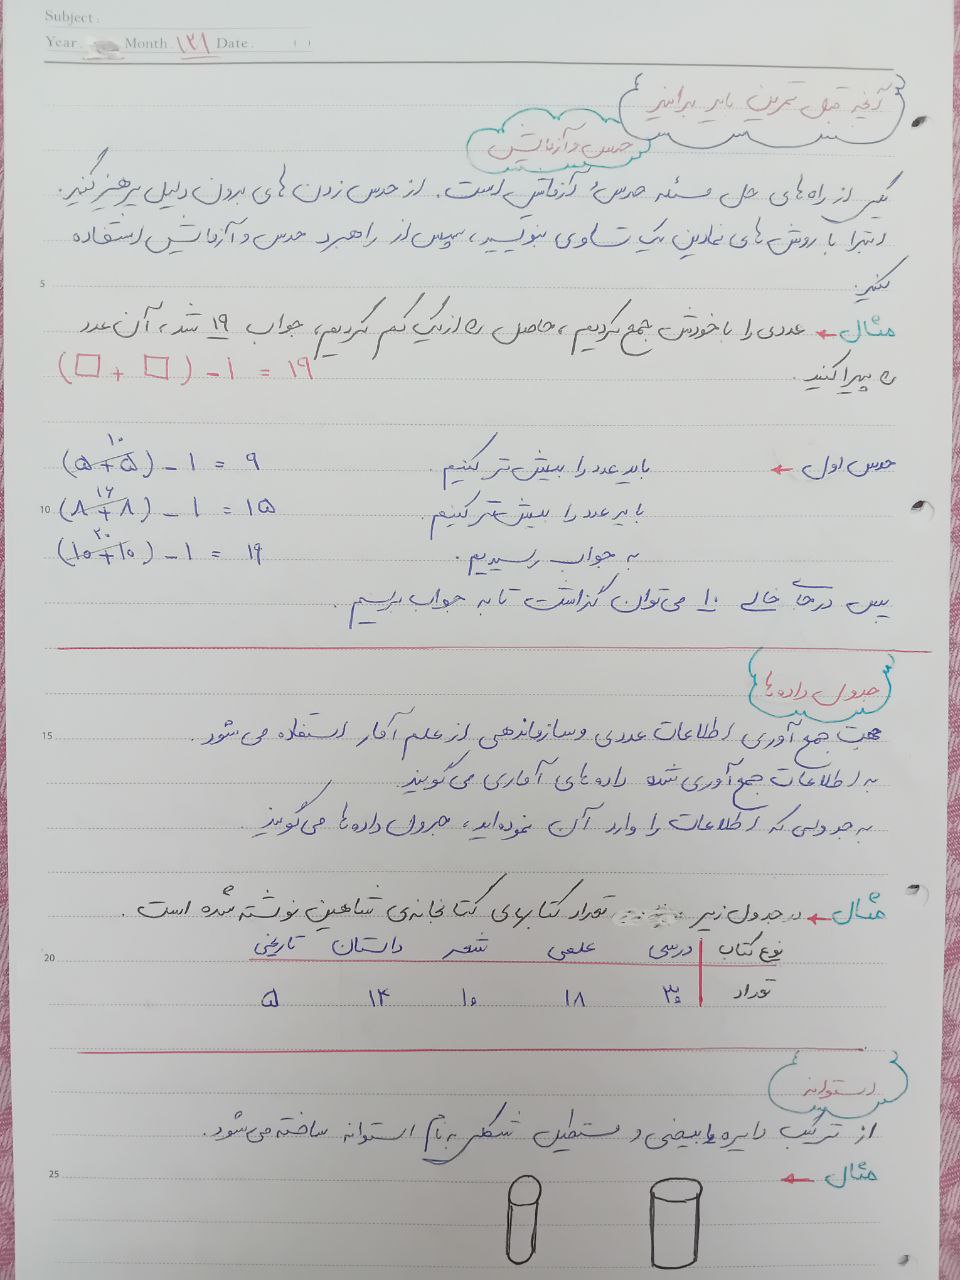 Subject :
Year . Month . ۱۳۱ Date . ( )
آنچه قبل تمرین باید بدانید
حدس و آزمایش
یکی از راه‌های حل مسئله حدس و آزمایش است. از حدس زدن های بدون دلیل پرهیز کنید.
ابتدا با روش‌های نمادین یک تساوی بنویسید، سپس از راهبرد حدس و آزمایش استفاده
کنید.
5
مثال ← عددی را با خودش جمع کردیم، حاصل را از یک کم کردیم، جواب ۱۹ شد، آن عدد
را پیدا کنید.
(□ + □) - ۱ = ۱۹
حدس اول ← باید عدد را بیش‌تر کنیم.
۱۰
(۵+۵) - ۱ = ۹
باید عدد را بیش‌تر کنیم.
۱۶
10 (۸+۸) - ۱ = ۱۵
به جواب رسیدیم.
۲۰
(۱۰+۱۰) - ۱ = ۱۹
پس در جای خالی ۱۰ می‌توان گذاشت تا به جواب برسیم.
جدول داده‌ها
15
جهت جمع آوری اطلاعات عددی و سازماندهی از علم آمار استفاده می‌شود.
به اطلاعات جمع آوری شده داده های آماری می‌گویند.
به جدولی که اطلاعات را وارد آن نموده‌اید، جدول داده‌ها می‌گویند.
مثال ← در جدول زیر تعداد کتابهای کتابخانه‌ی شاهین نوشته شده است.
20
نوع کتاب | درسی علمی شعر داستان تاریخی
تعداد | ۳۰ ۱۸ ۱۰ ۱۴ ۵
استوانه
از ترکیب دایره یا بیضی و مستطیل شکلی به نام استوانه ساخته می‌شود.
25
مثال ←